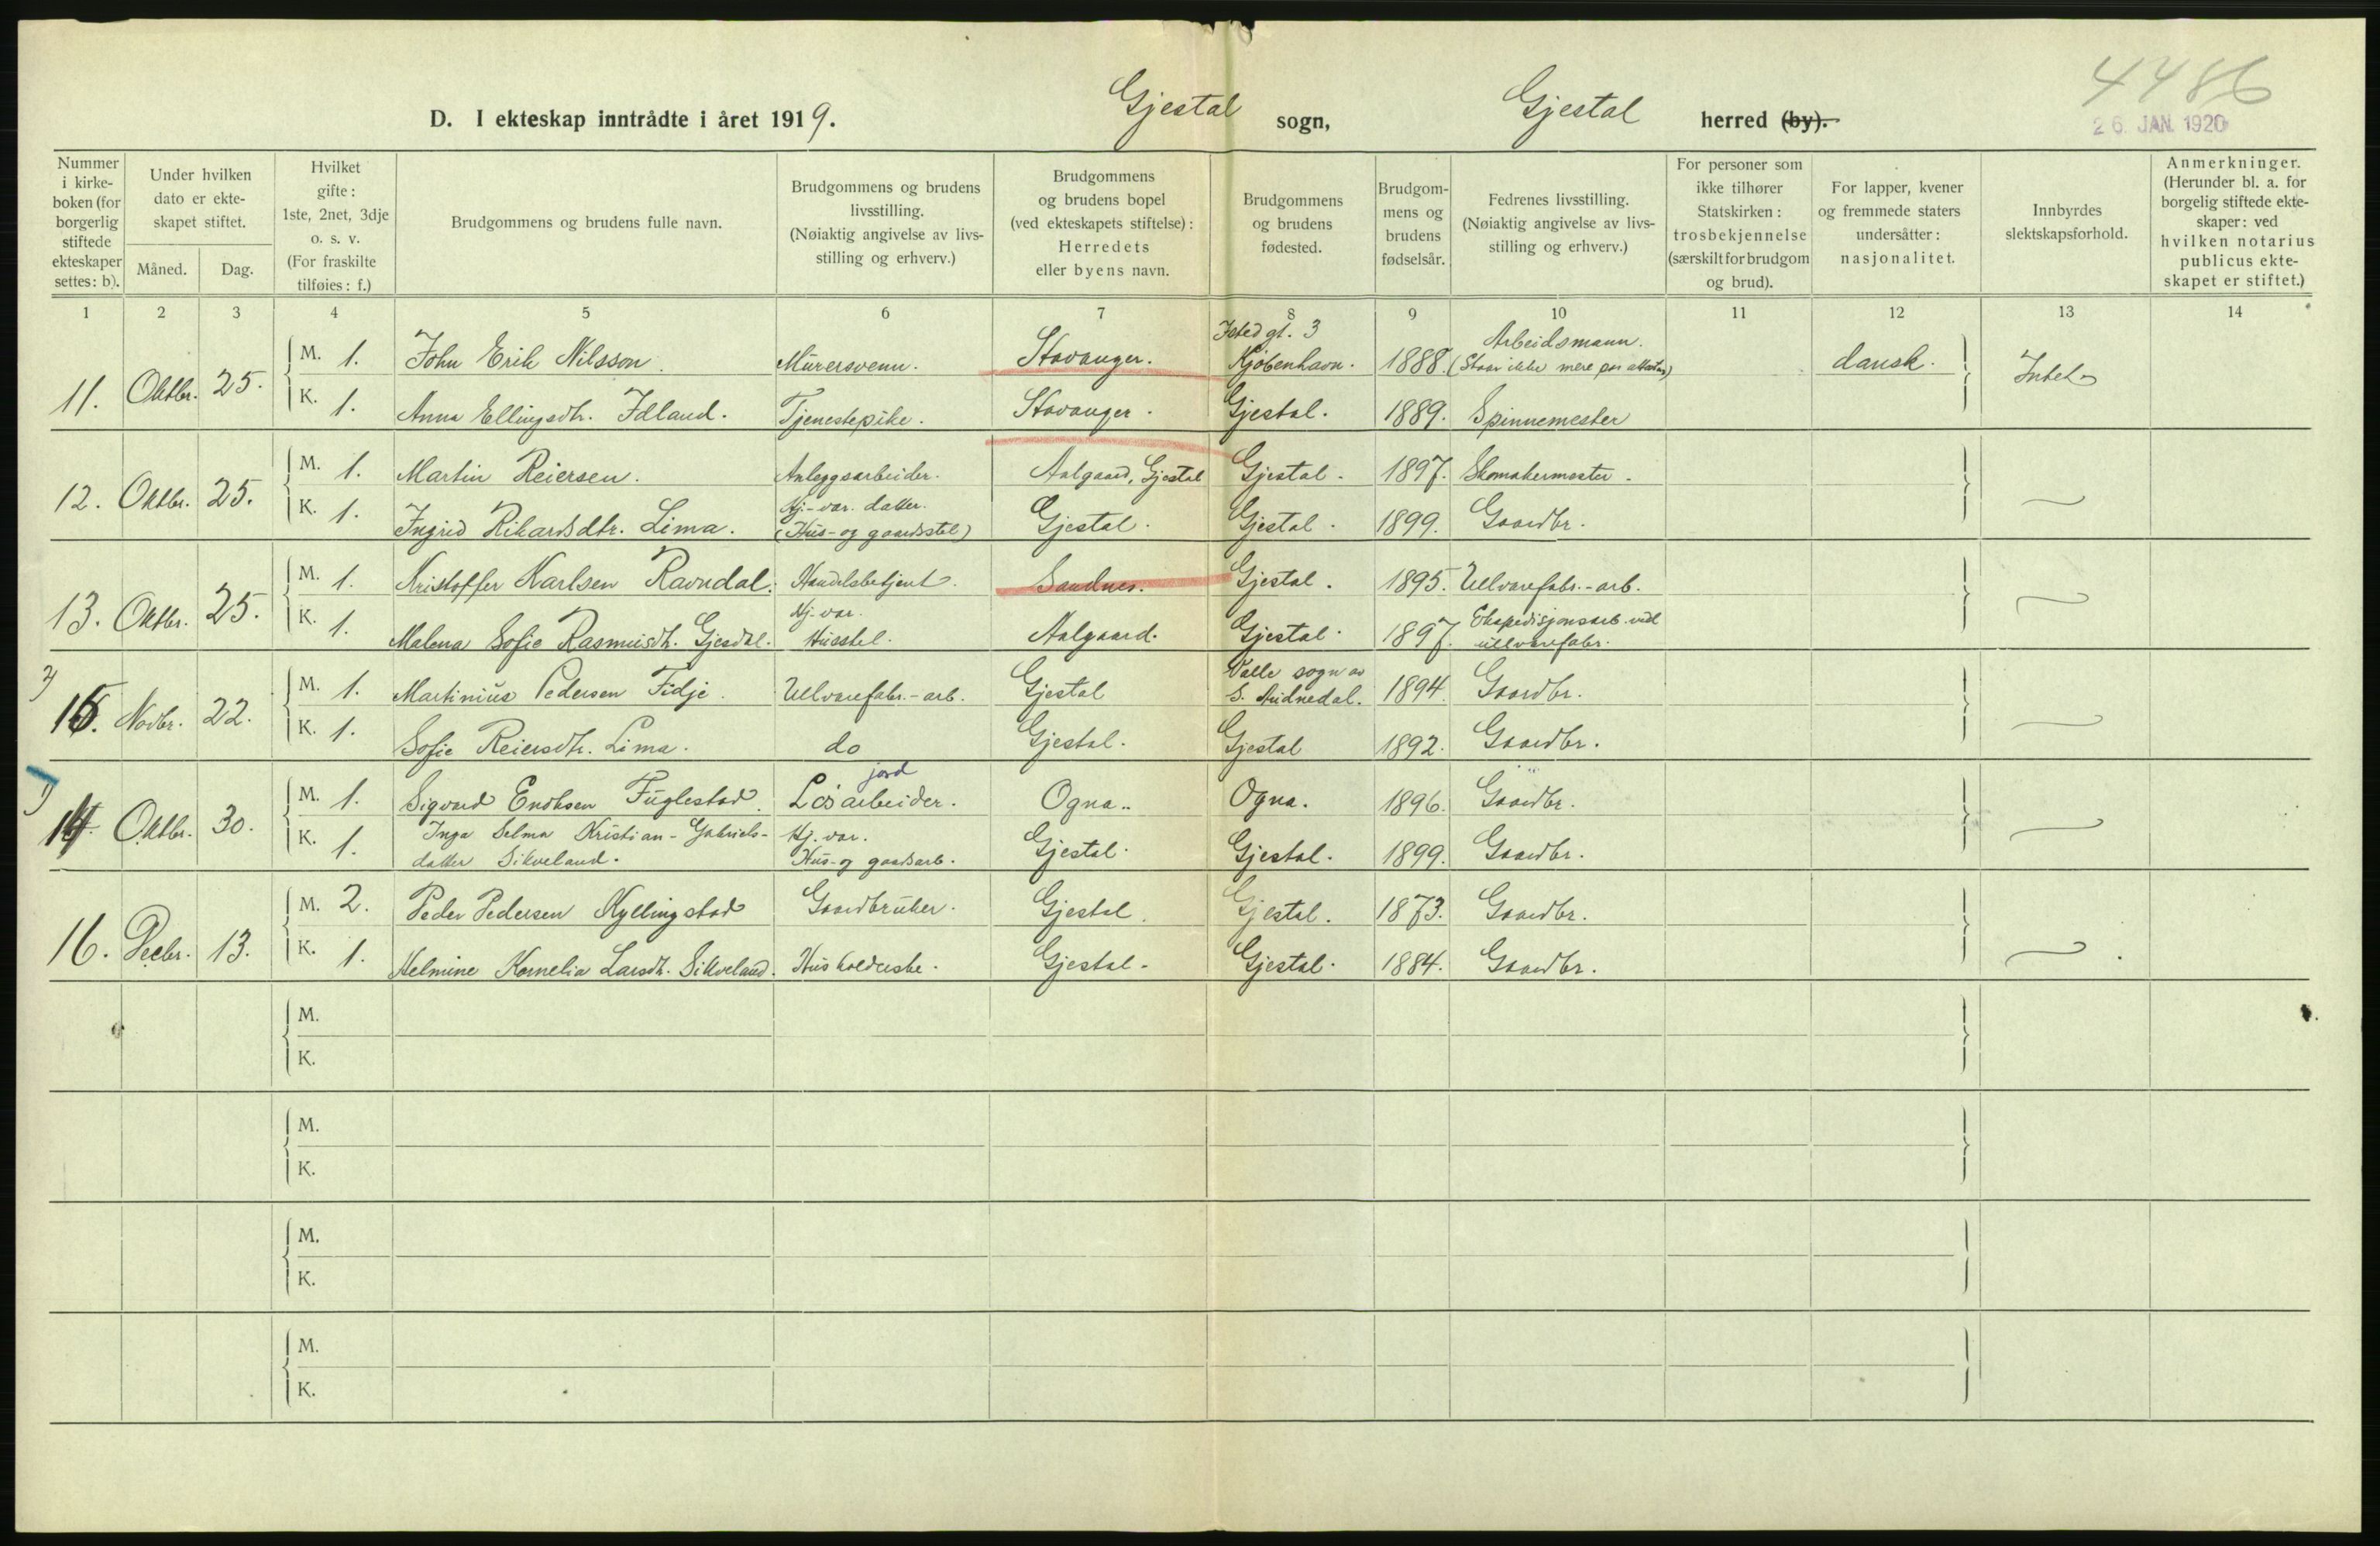 4486
26. JAN. 1920
D. I ekteskap inntrådte i året 1919. Gjestal sogn, Gjestal herred (by).
Nummer i kirkeboken (for borgerlig stiftede ekteskaper settes: b).
Under hvilken dato er ekteskapet stiftet.
Måned. Dag.
Hvilket gifte: 1ste, 2net, 3dje o. s. v. (For fraskilte tilføies: f.)
Brudgommens og brudens fulle navn.
Brudgommens og brudens livsstilling. (Nøiaktig angivelse av livsstilling og erhverv.)
Brudgommens og brudens bopel (ved ekteskapets stiftelse): Herredets eller byens navn.
Brudgommens og brudens fødested.
Brudgommens og brudens fødselsår.
Fedrenes livsstilling. (Nøiaktig angivelse av livsstilling og erhverv.)
For personer som ikke tilhører Statskirken: trosbekjennelse (særskilt for brudgom og brud).
For lapper, kvener og fremmede staters undersåtter: nasjonalitet.
Innbyrdes slektskapsforhold.
Anmerkninger. (Herunder bl. a. for borgelig stiftede ekteskaper: ved hvilken notarius publicus ekteskapet er stiftet.)
1 2 3 4 5 6 7 8 9 10 11 12 13 14
11. Oktbr. 25. M. 1. John Erik Nilsson. Murersvenn. Stavanger. Istedgt. 3 Kjøbenhavn. 1888. Arbeidsmann. (Staar ikke mere paa attesten) dansk. Intet
K. 1. Anna Ellingsdtr. Idland. Tjenestepike. Stavanger. Gjestal. 1889. Spinnemester
12. Oktbr. 25. M. 1. Martin Reiersen. Anleggsarbeider. Aalgaard, Gjestal Gjestal. 1897. Skomakermester.
K. 1. Ingrid Rikardsdtr. Lima. Hj.-vær. datter. (Hus- og gaardsstel) Gjestal. Gjestal. 1899. Gaardbr.
13. Oktbr. 25. M. 1. Kristoffer Karlsen Ravndal. Handelsbetjent. Sandnes. Gjestal. 1895. Ullvarefabr.-arb.
K. 1. Malena Sofie Rasmusdtr. Gjesdal. Hj. vær. Husstel. Aalgaard. Gjestal. 1897. Ekspedisjonsarb. ved ullvarefabr.
2) 15. Novbr. 22. M. 1. Martinius Pedersen Fidje. Ullvarefabr.-arb. Gjestal Valle sogn av S. Audnedal. 1894. Gaardbr.
K. 1. Sofie Reiersdtr. Lima. do Gjestal. Gjestal 1892. Gaardbr.
1) 14. Oktbr. 30. M. 1. Sigvard Enoksen Fuglestad. Løs jordarbeider. Ogna. Ogna. 1896. Gaardbr.
K. 1. Inga Selma Kristian-Gabrielsdatter Sikveland. Hj. vær. Hus- og gaardsarb. Gjestal. Gjestal. 1899. Gaardbr.
16. Decbr. 13. M. 2. Peder Pedersen Kyllingstad Gaardbruker. Gjestal. Gjestal. 1873. Gaardbr.
K. 1. Helmine Kornelia Larsdtr. Sikveland. Husholderske. Gjestal. Gjestal. 1884. Gaardbr.
M.
K.
M.
K.
M.
K.
M.
K.